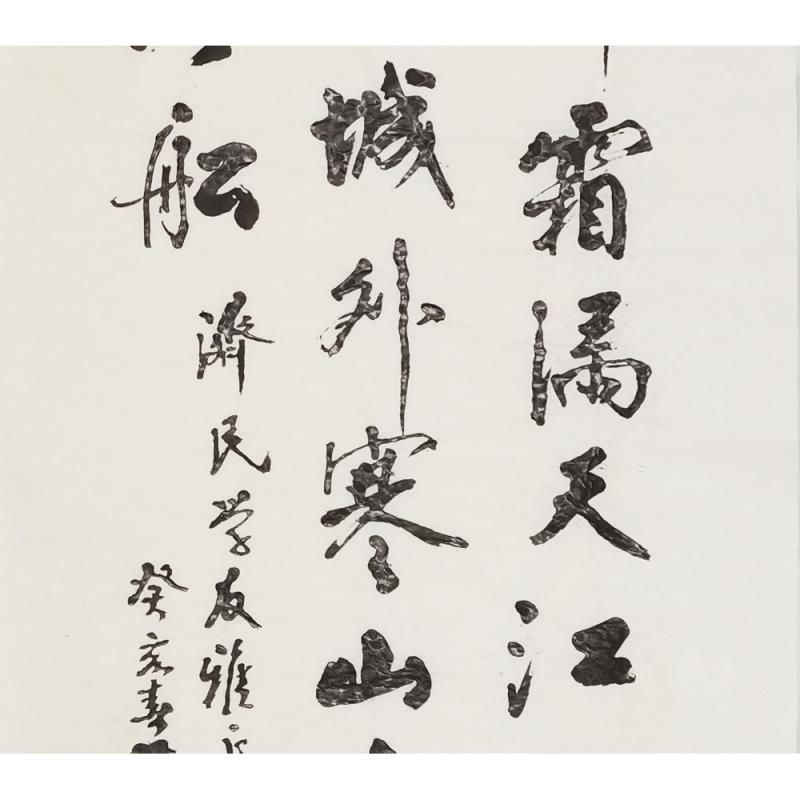 霜满天江
城外寒山
船
济民学友雅
癸亥春